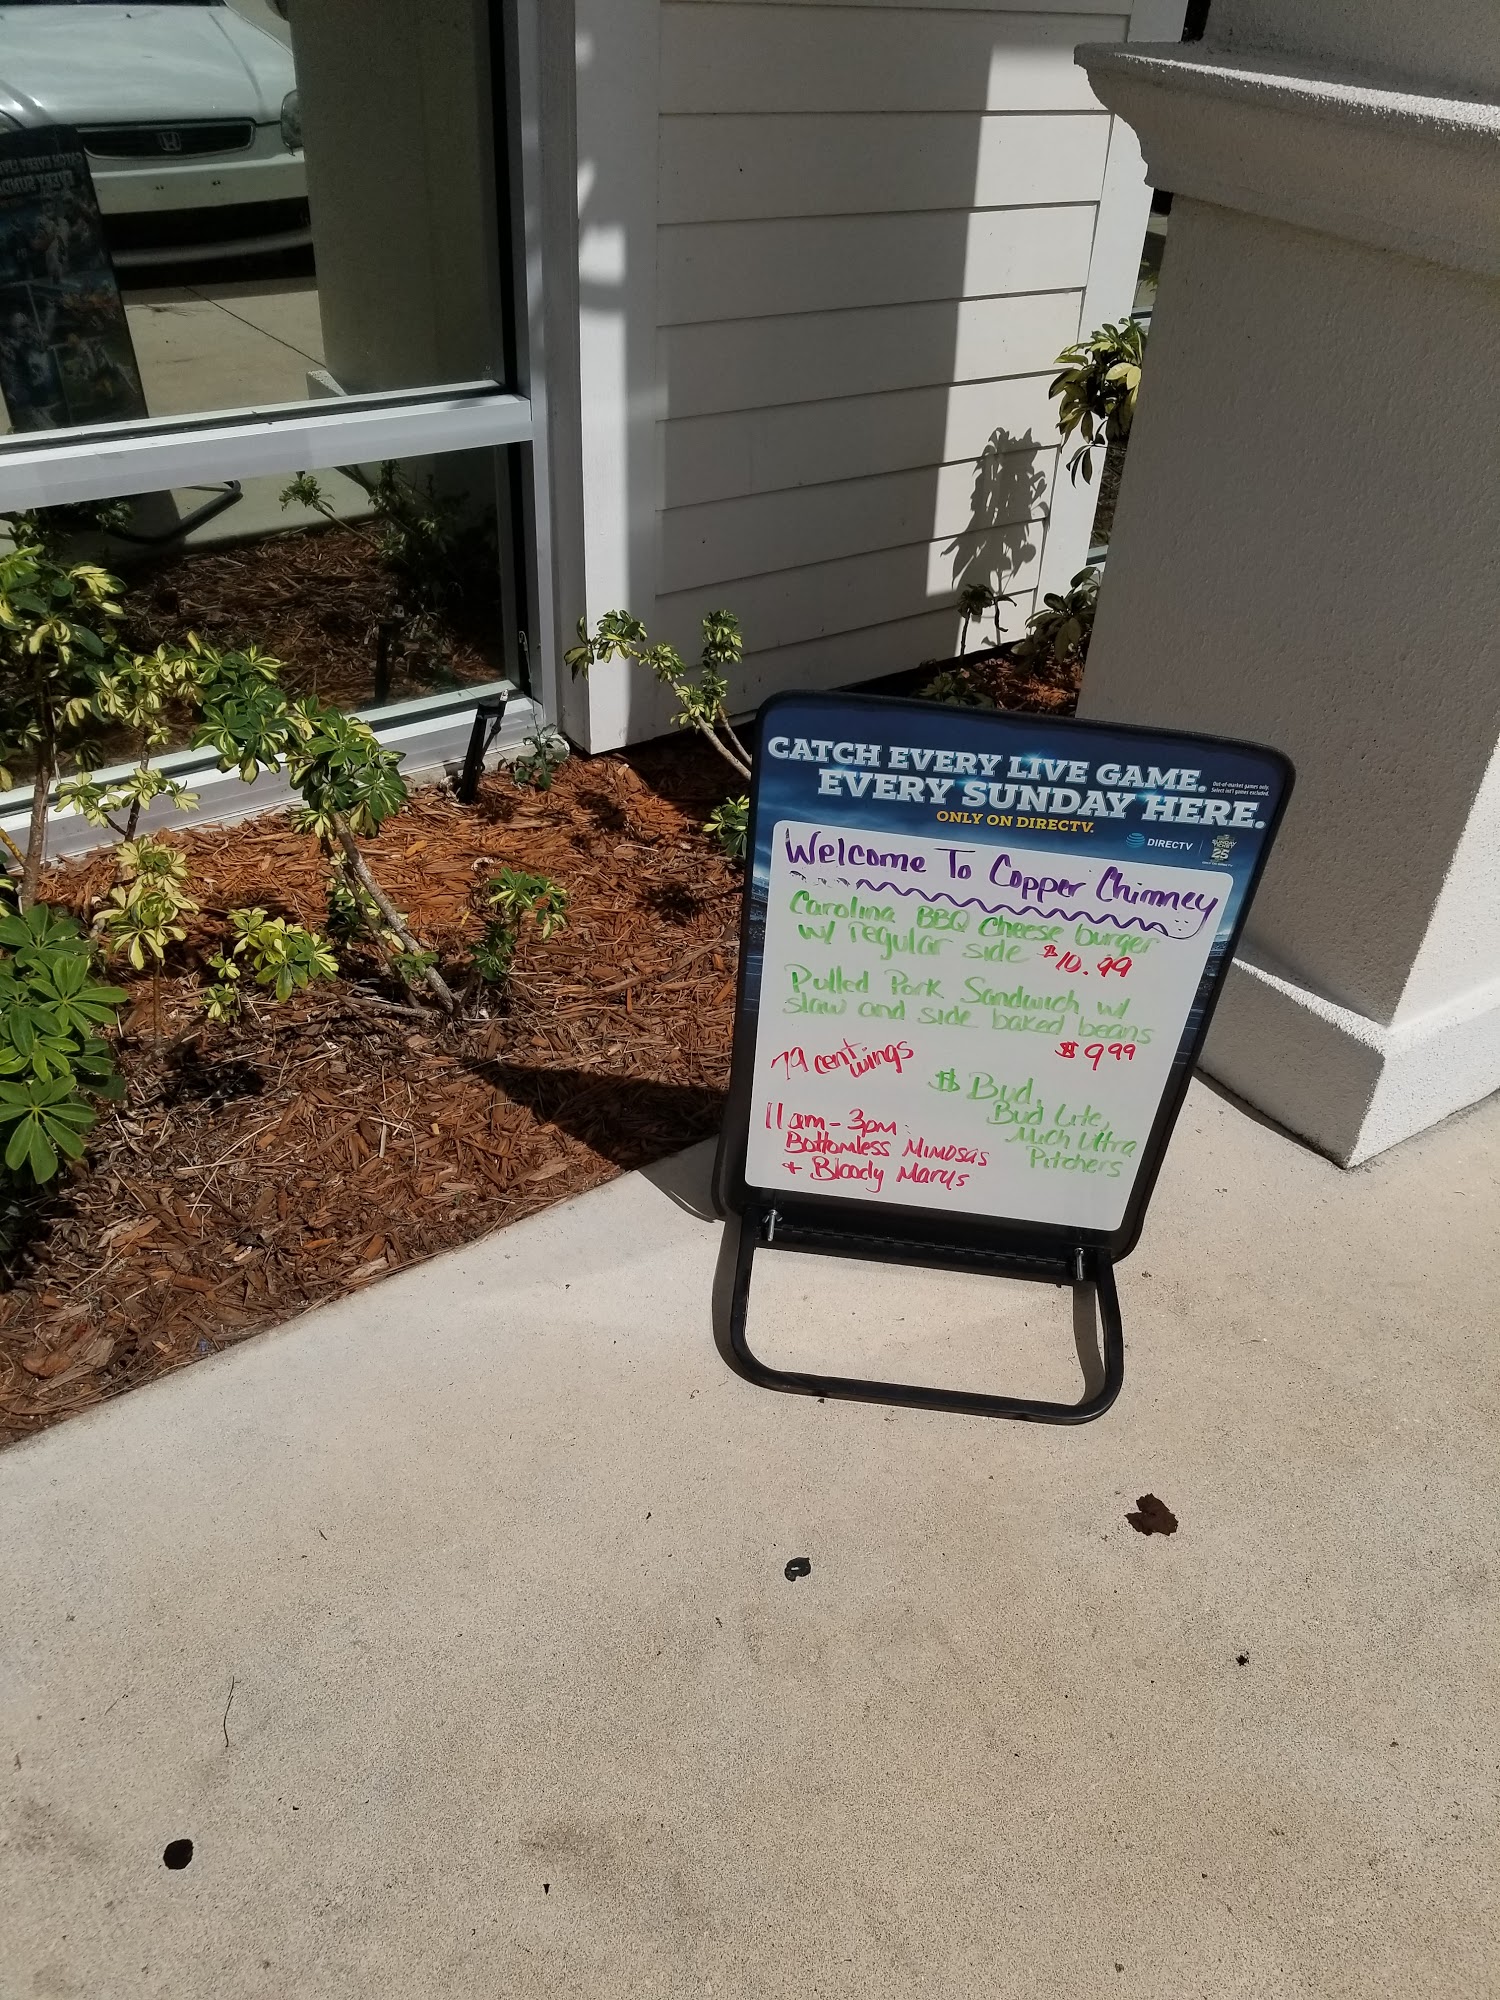 CATCH EVERY LIVE GAME.
EVERY SUNDAY HERE.
Out-of-market games only.
Select int'l games excluded.
ONLY ON DIRECTV.
DIRECTV
SUNDAY
TICKET
25
Welcome To Copper Chimney
Carolina BBQ Cheese burger
w/ regular side $10.99
Pulled Pork Sandwich w/
slaw and side baked beans
$9.99
79 cent
wings
$ Bud,
Bud Lite,
Mich Ultra
Pitchers
11am-3pm:
Bottomless Mimosas
+ Bloody Marys